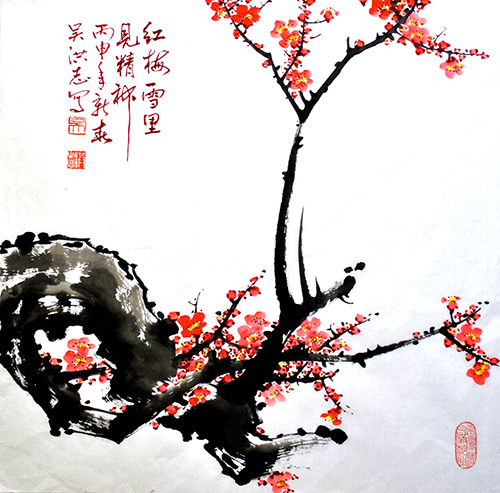 红梅雪里
见精神
丙申年新春
吴洪志写